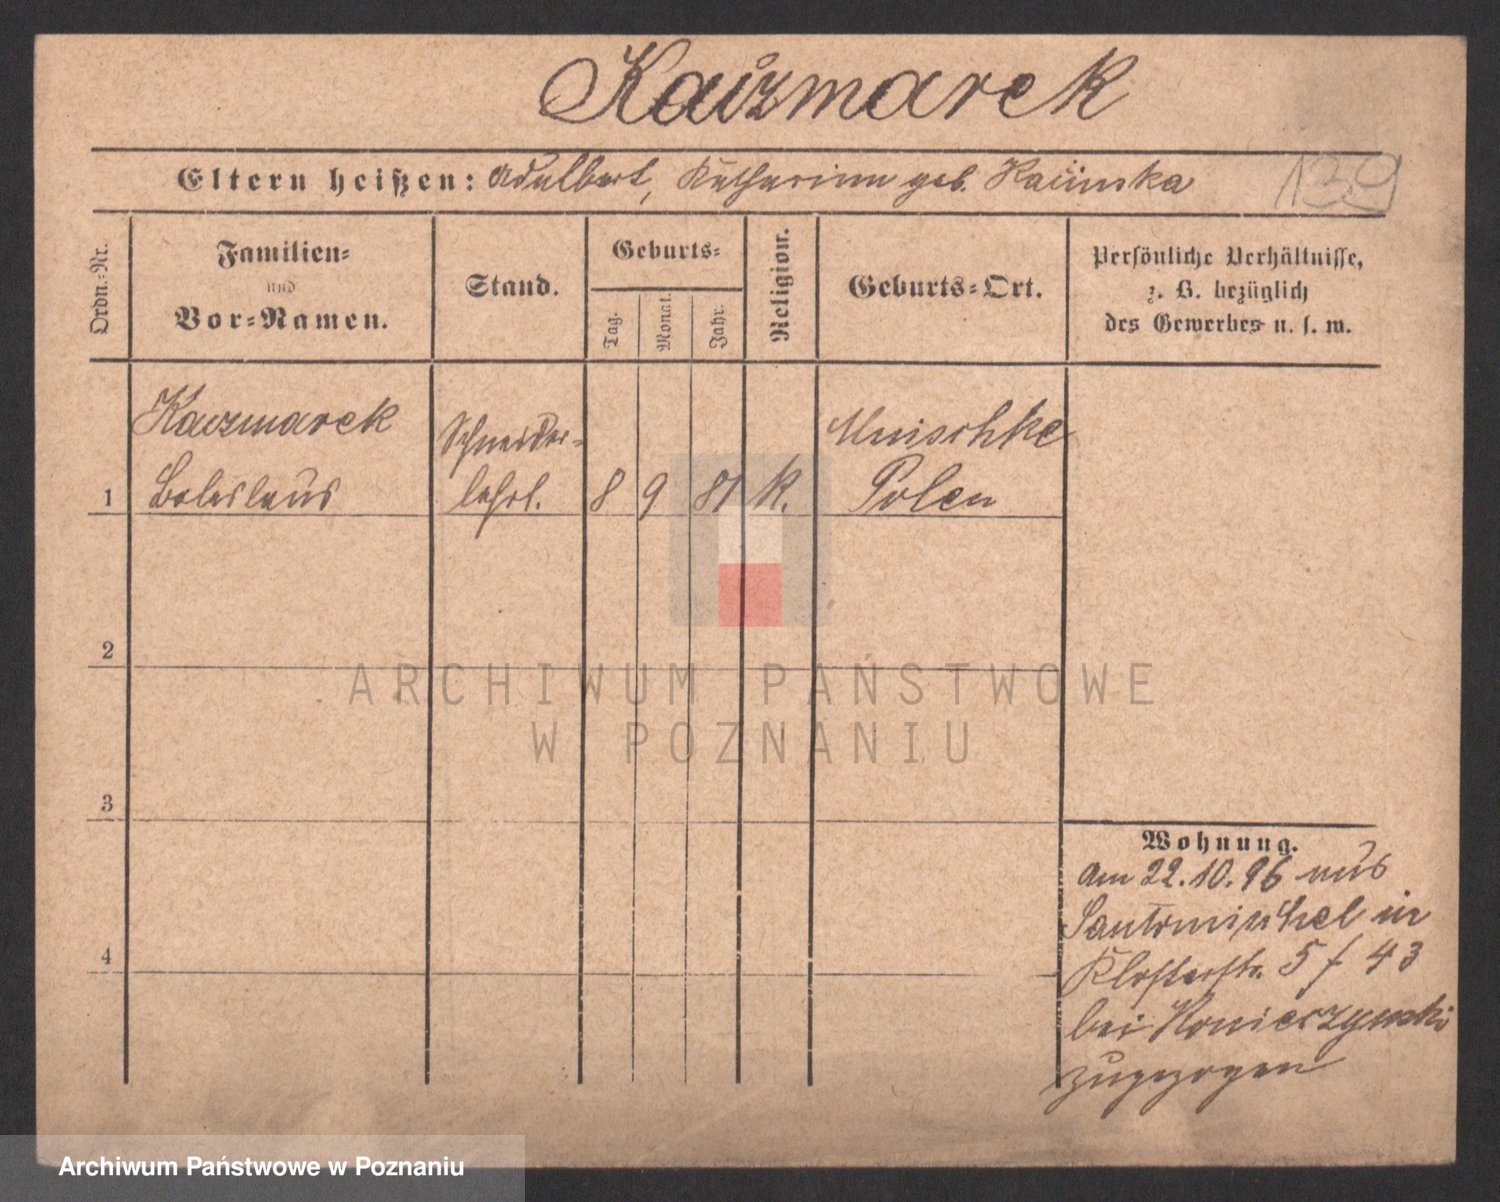 Kaczmarek
Eltern heißen: Adalbert, Katharina geb.
139
Ordn.-Nr.
Familien-
und
Vor-Namen.
Stand.
Geburts-
Tag.
Monat.
Jahr.
Religion.
Geburts-Ort.
Persönliche Verhältnisse,
z. B. bezüglich
des Gewerbes u. s. w.
1
Kaczmarek
Boleslaus
Schneider-
lehrl.
8
9
81
k.
Mnischke
Polen
2
3
4
Wohnung.
am 22.10.96 aus
Santomischel in
Klosterstr. 5 f 43
bei Konieczynski
zugezogen
ARCHIWUM PAŃSTWOWE
W POZNANIU
Archiwum Państwowe w Poznaniu